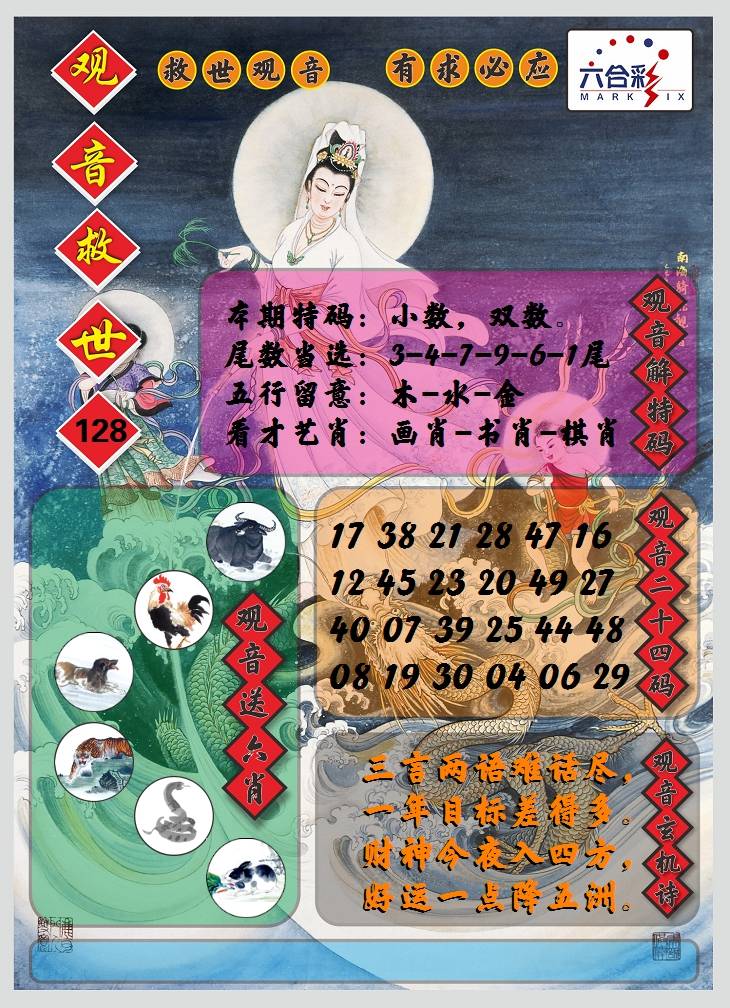 观音救世
128
救世观音 有求必应
六合彩
MARK SIX
本期特码：小数，双数。
尾数当选：3-4-7-9-6-1尾
五行留意：木-水-金
看才艺肖：画肖-书肖-棋肖
观音解特码
观音送六肖
17 38 21 28 47 16
12 45 23 20 49 27
40 07 39 25 44 48
08 19 30 04 06 29
观音二十四码
三言两语难话尽，
一年目标差得多。
财神今夜入四方，
好运一点降五洲。
观音玄机诗